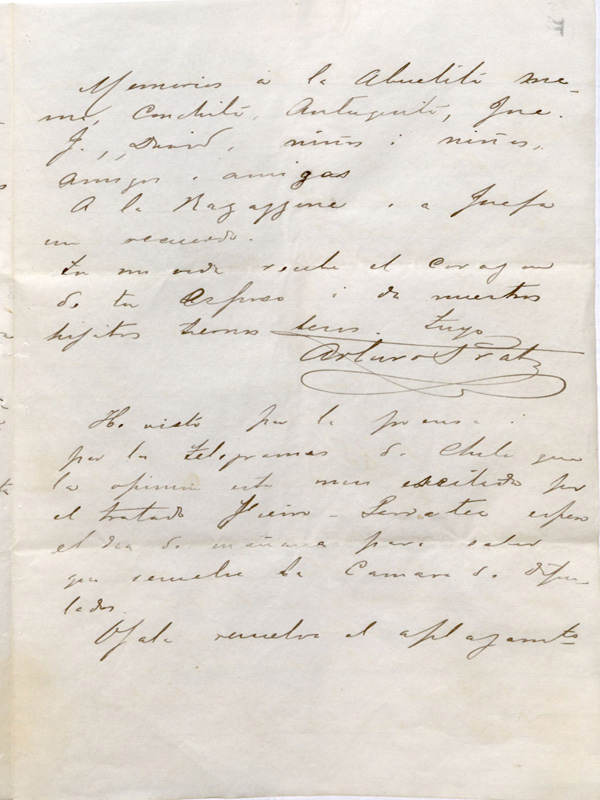 Memorias a la Abuelita me-
mé, Conchita, Antuquita, Jue.
J., David, niños i niñas,
amigos i amigas
A la Ragazzone i a Juefa
un recuerdo.
Tu mi vida recibe el corazon
de tu esposo i da nuestros
hijitos tiernos besos. Tuyo
Arturo Prat
He visto por la prensa i
por los telegramas de Chile que
la opinion está mui escitada por
el tratado Fierro-Sarratea espero
el dia de mañana para saber
que resuelve la Camara de Dipu
tados.
Ojala resuelva el aplazamto